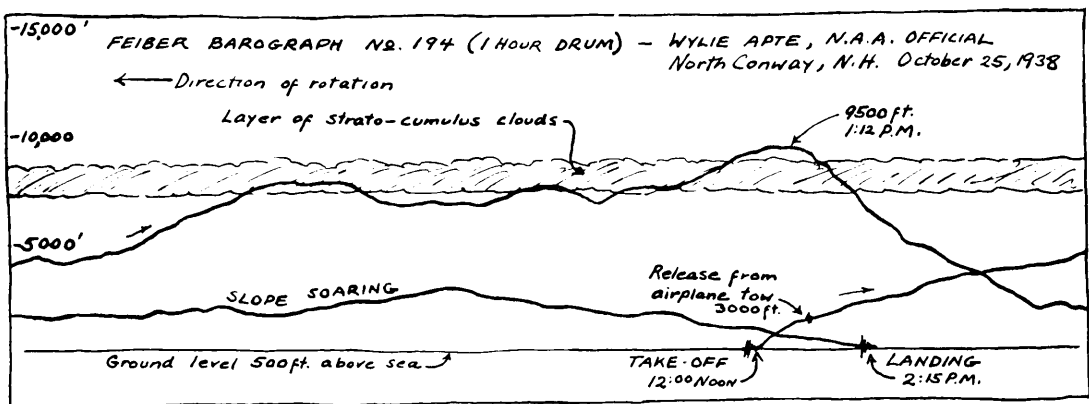 -15,000'
FEIBER BAROGRAPH NO. 194 (1 HOUR DRUM) – WYLIE APTE, N.A.A. OFFICIAL
North Conway, N.H. October 25, 1938
Direction of rotation
Layer of strato-cumulus clouds
9500 ft.
1:12 P.M.
-10,000
-5000'
Release from
airplane tow
3000 ft.
SLOPE SOARING
Ground level 500 ft. above sea
TAKE-OFF
12:00 NOON
LANDING
2:15 P.M.